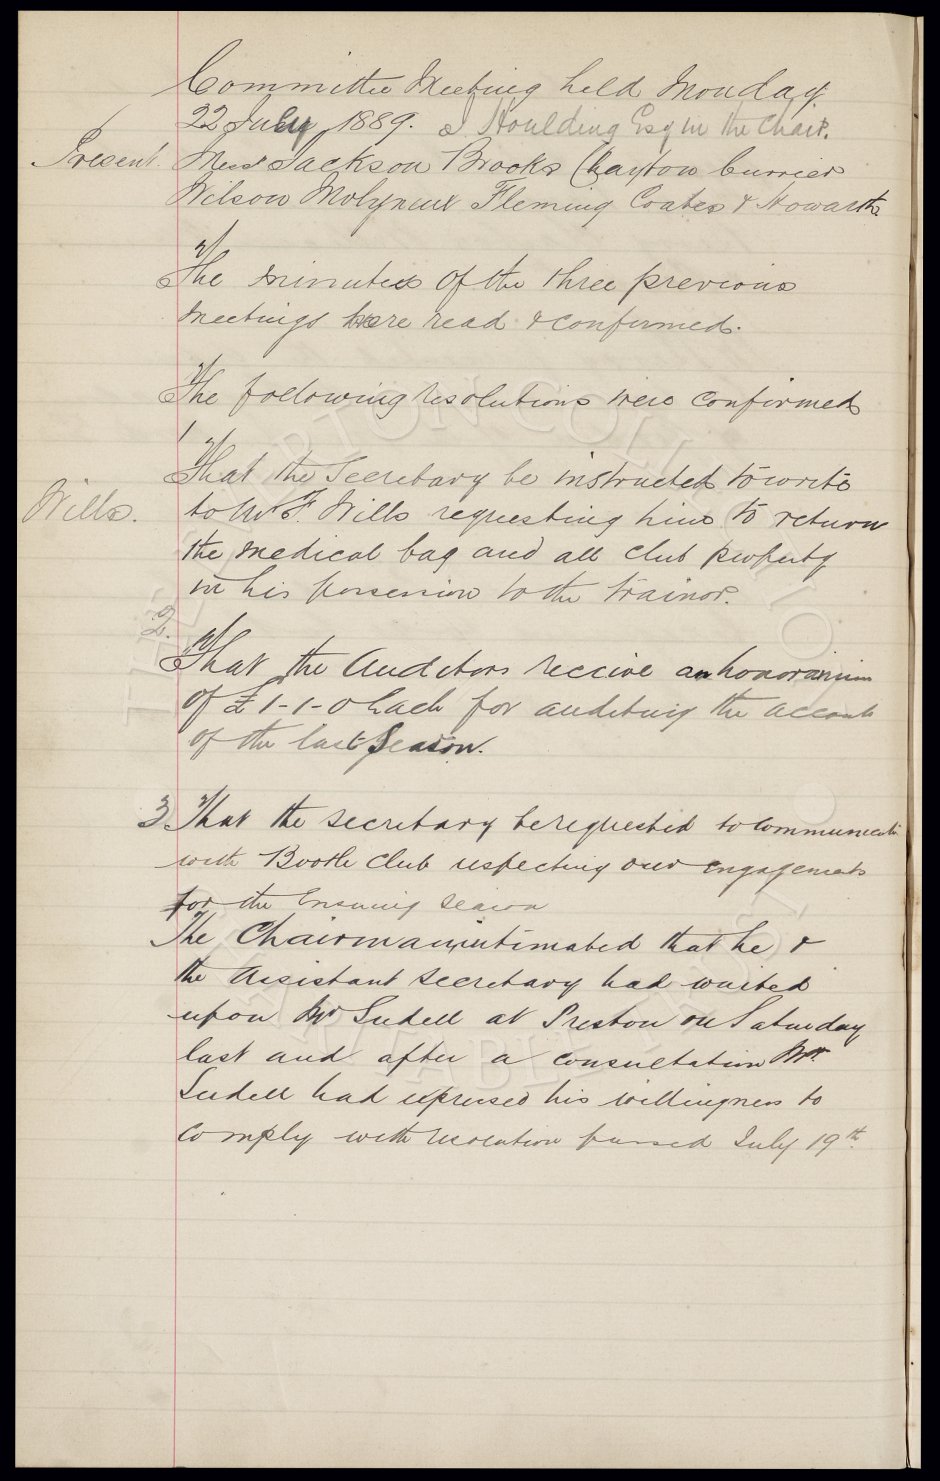 Committee Meeting held Monday
22 July 1889. J Houlding Esq in the Chair.
Present. Messrs Jackson Brooks Clayton Currier
Wilson Molyneux Fleming Coates & Howarth
The minutes of the three previous
meetings were read & confirmed.
The following resolutions were confirmed
1
That the Secretary be instructed to write
Wills. to Mr F. Wills requesting him to return
the medical bag and all club property
in his possession to the trainor.
2.
That the Auditors receive an honorarium
of £1-1-0 Each for auditing the accounts
of the last Season.
3 That the secretary be requested to communicate
with Bootle Club respecting our engagements
for the Ensuing season
The Chairman intimated that he &
the Assistant secretary had waited
upon Mr Sudell at Preston on Saturday
last and after a consultation Mr.
Sudell had expressed his willingness to
comply with resolution passed July 19th.
THE EVERTON COLLECTION
CHARITABLE TRUST